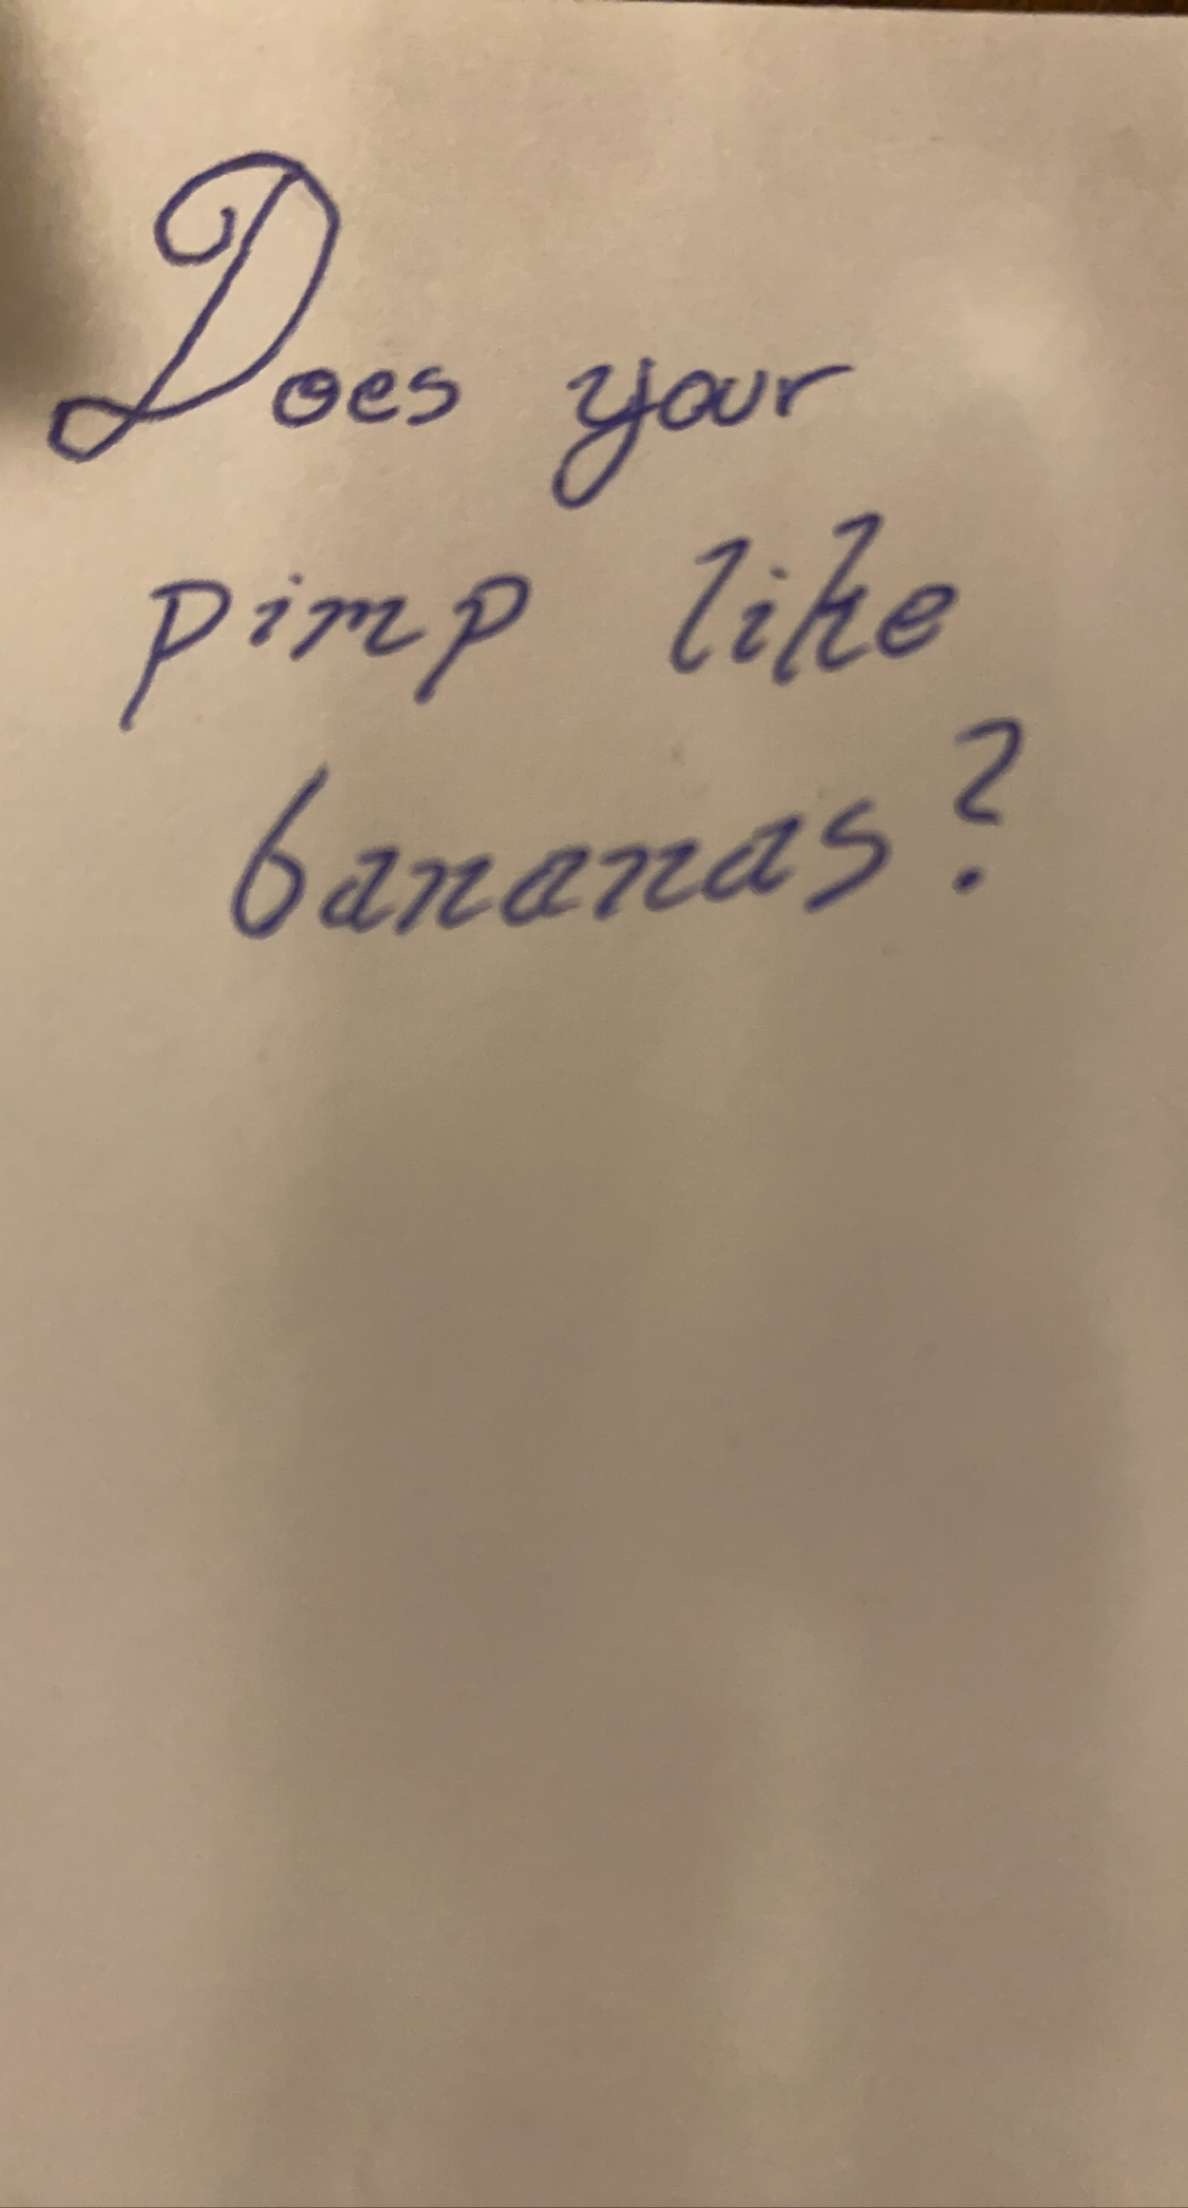 Does your
pimp like
bananas?